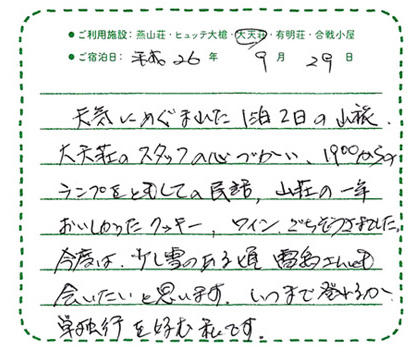 ●ご利用施設:燕山荘・ヒュッテ大槍・大天荘・有明荘・合戦小屋
●ご宿泊日: 平成26年 9月 29日
天気にめぐまれた1泊2日の山旅.
大天荘のスタッフの心づかい、1900からの
ランプをともしての民話, 山荘の一年
おいしかったクッキー, ワイン ごちそうさまでした.
今度は. 少し雪のある頃 雷鳥さんにも
会いたいと思います. いつまで登れるか.
単独行を好む私です.